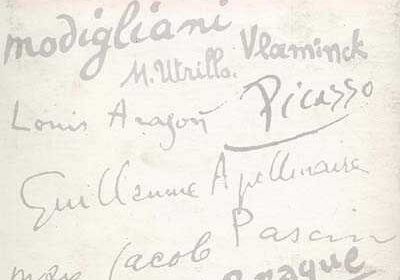 modigliani
Vlaminck
M. Utrillo.
Louis Aragon
Picasso
Guillaume Apollinaire
Max Jacob
Pascin
Braque